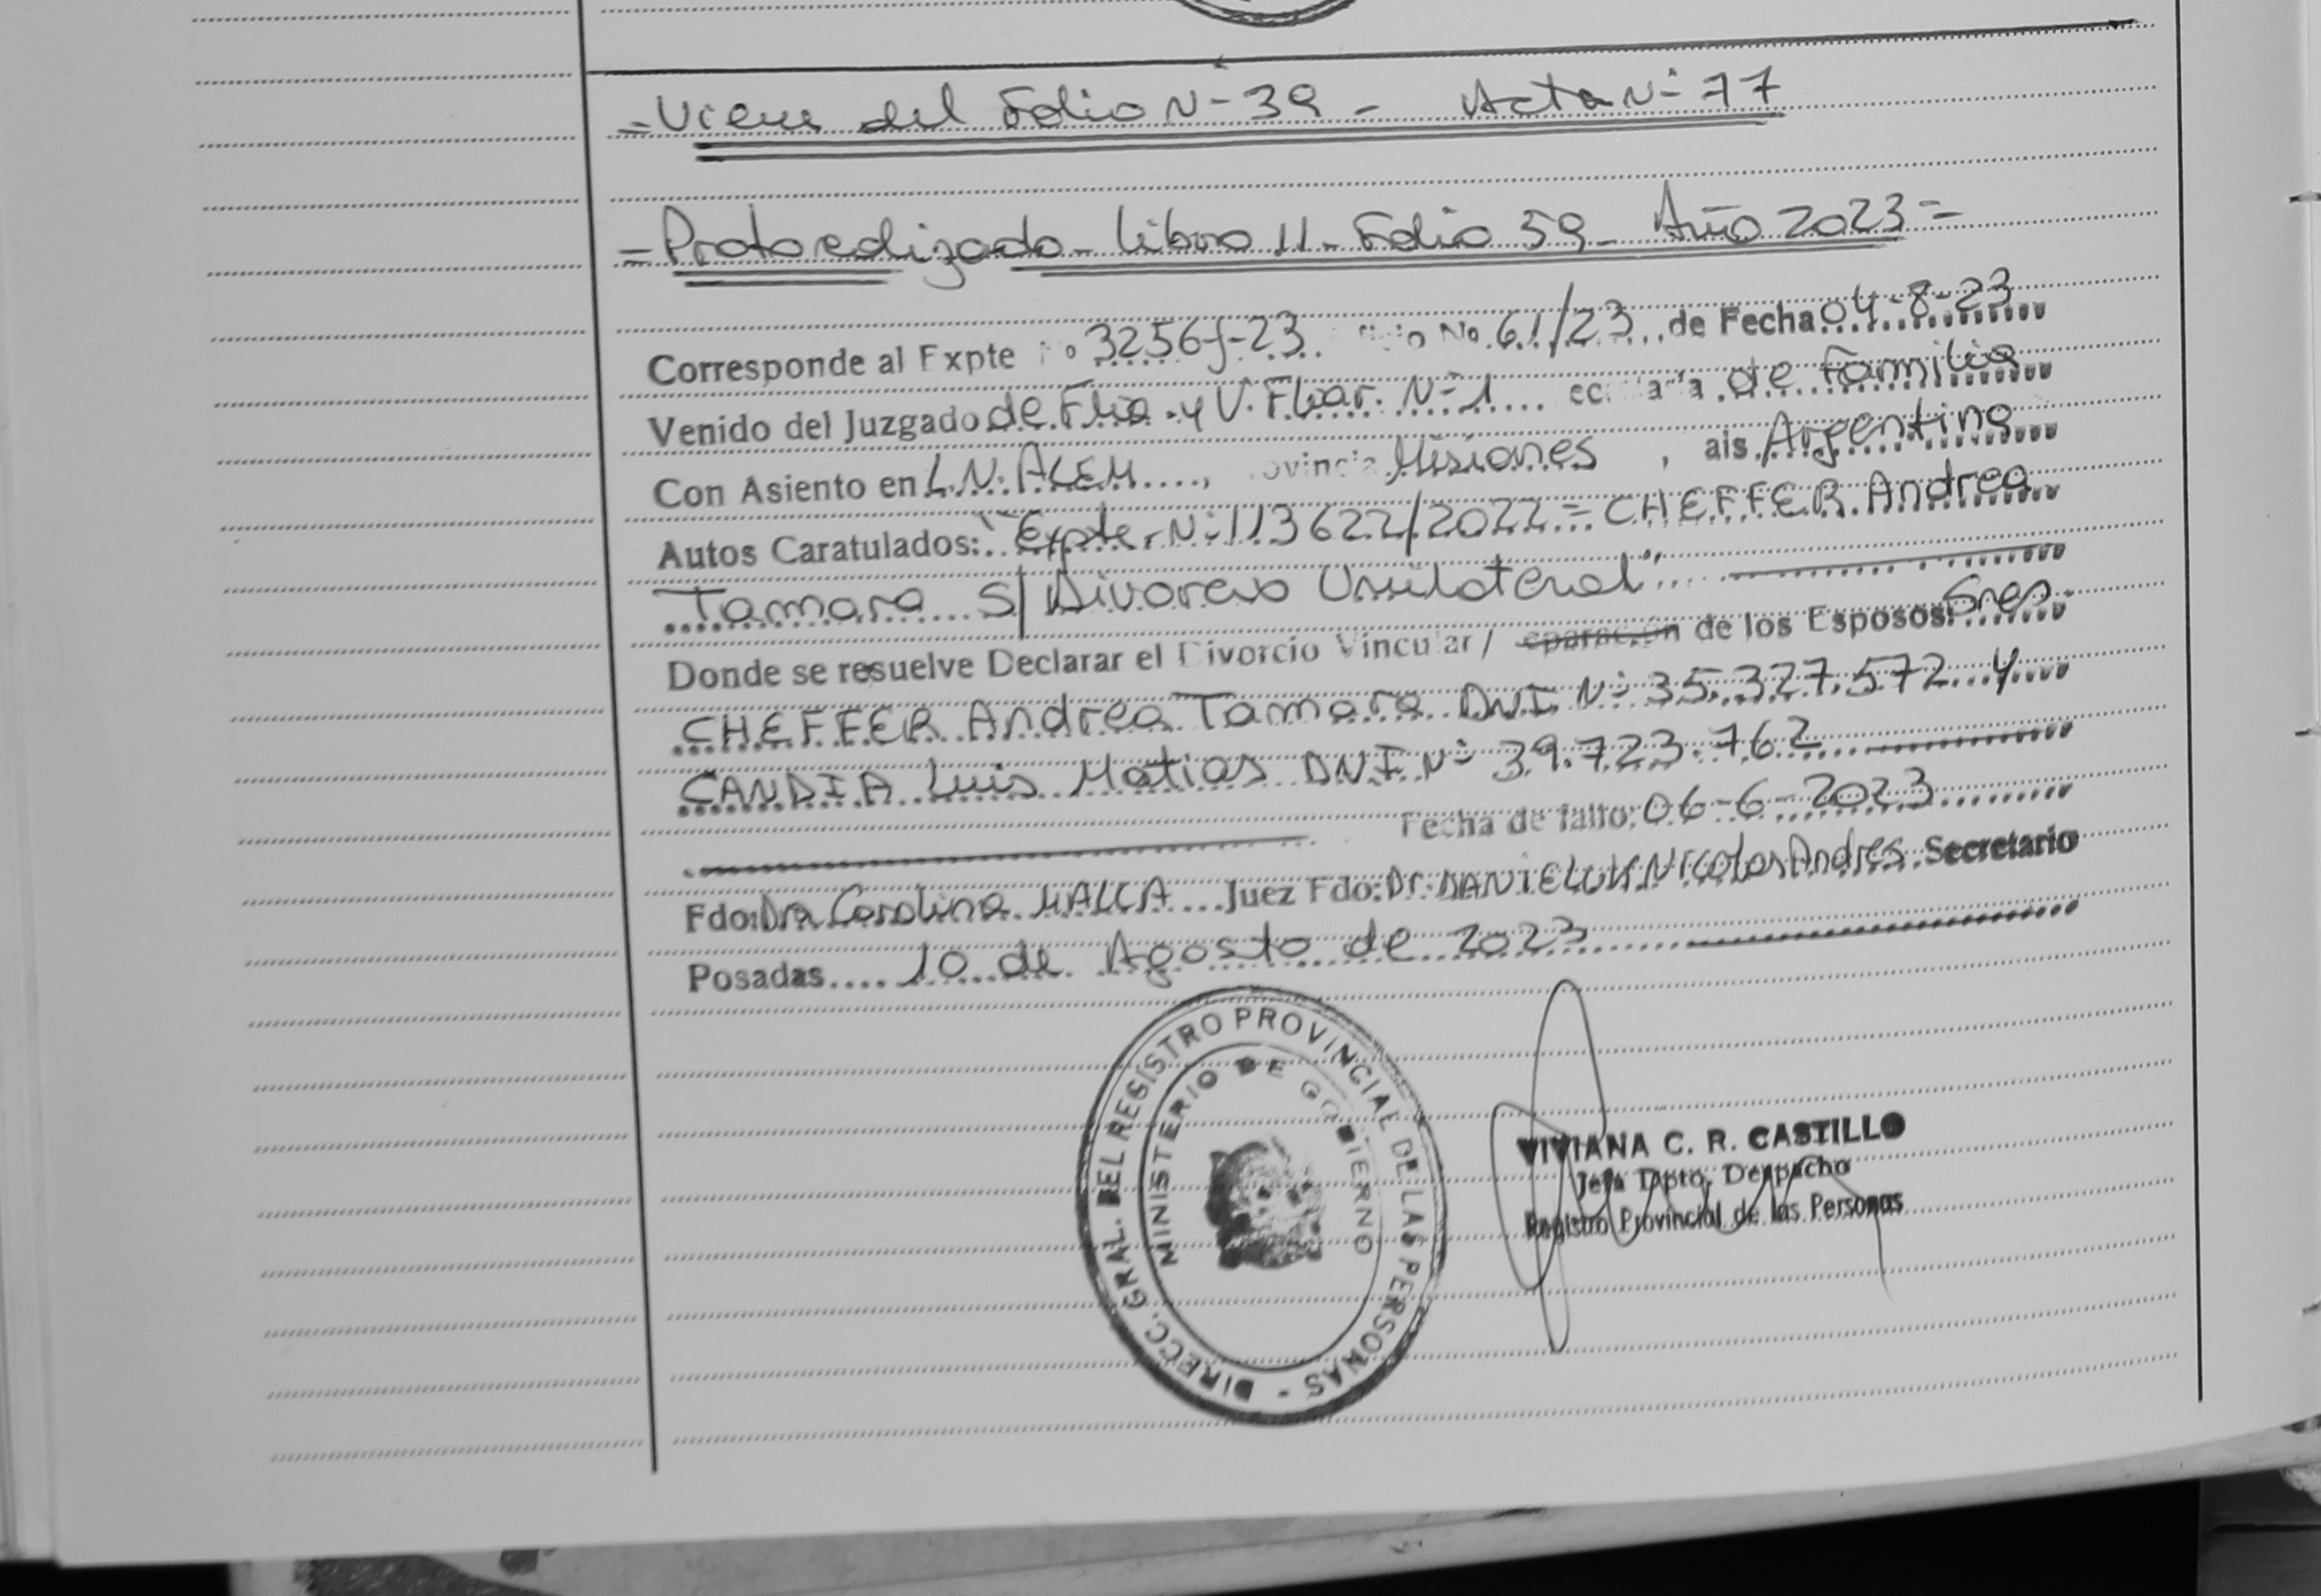 =Viene del Folio N- 39 - Acta N- 77
=Protocolizado- Libro 11- Folio 59- Año 2023=
Corresponde al Expte No 3256f-23. No. 61/23 de Fecha 04-8-23
Venido del Juzgado de Flia. y V. Fliar. N- 1 de Familia
Con Asiento en L.N. ALEM, Misiones, Argentina
Autos Caratulados: "Expte. N- 113622/2022 = CHEFFER Andrea
Tamara S/ Divorcio Unilateral"
Donde se resuelve Declarar el Divorcio Vincular / eparación de los Esposos: Sres.
CHEFFER Andrea Tamara DNI N- 35.327.572 y
CANDIA Luis Matias DNI N- 39.723.762
Fecha de fallo: 06-6-2023
Fdo: Dra Carolina MALCA Juez Fdo: Dr. DANIELUK Nicolas Andres Secretario
Posadas 10 de Agosto de 2023
DIRECC. GRAL. DEL REGISTRO PROVINCIAL DE LAS PERSONAS -
MINISTERIO DE GOBIERNO
VIVIANA C. R. CASTILLO
Jefa Dpto. Despacho
Registro Provincial de las Personas